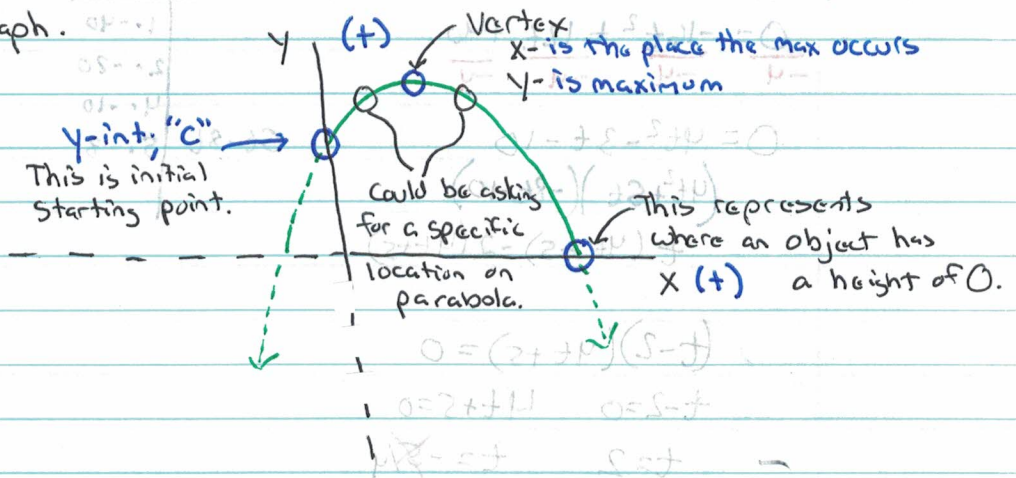 aph.
y (+)
Vertex
x- is the place the max occurs
y- is maximum
y-int, "c"
This is initial
starting point.
Could be asking
for a specific
location on
parabola.
This represents
where an object has
a height of 0.
x (+)
0 = 4t² - 3t - 10
(t-2)(4t+5) = 0
t-2=0 4t+5=0
t=2 t=-5/4